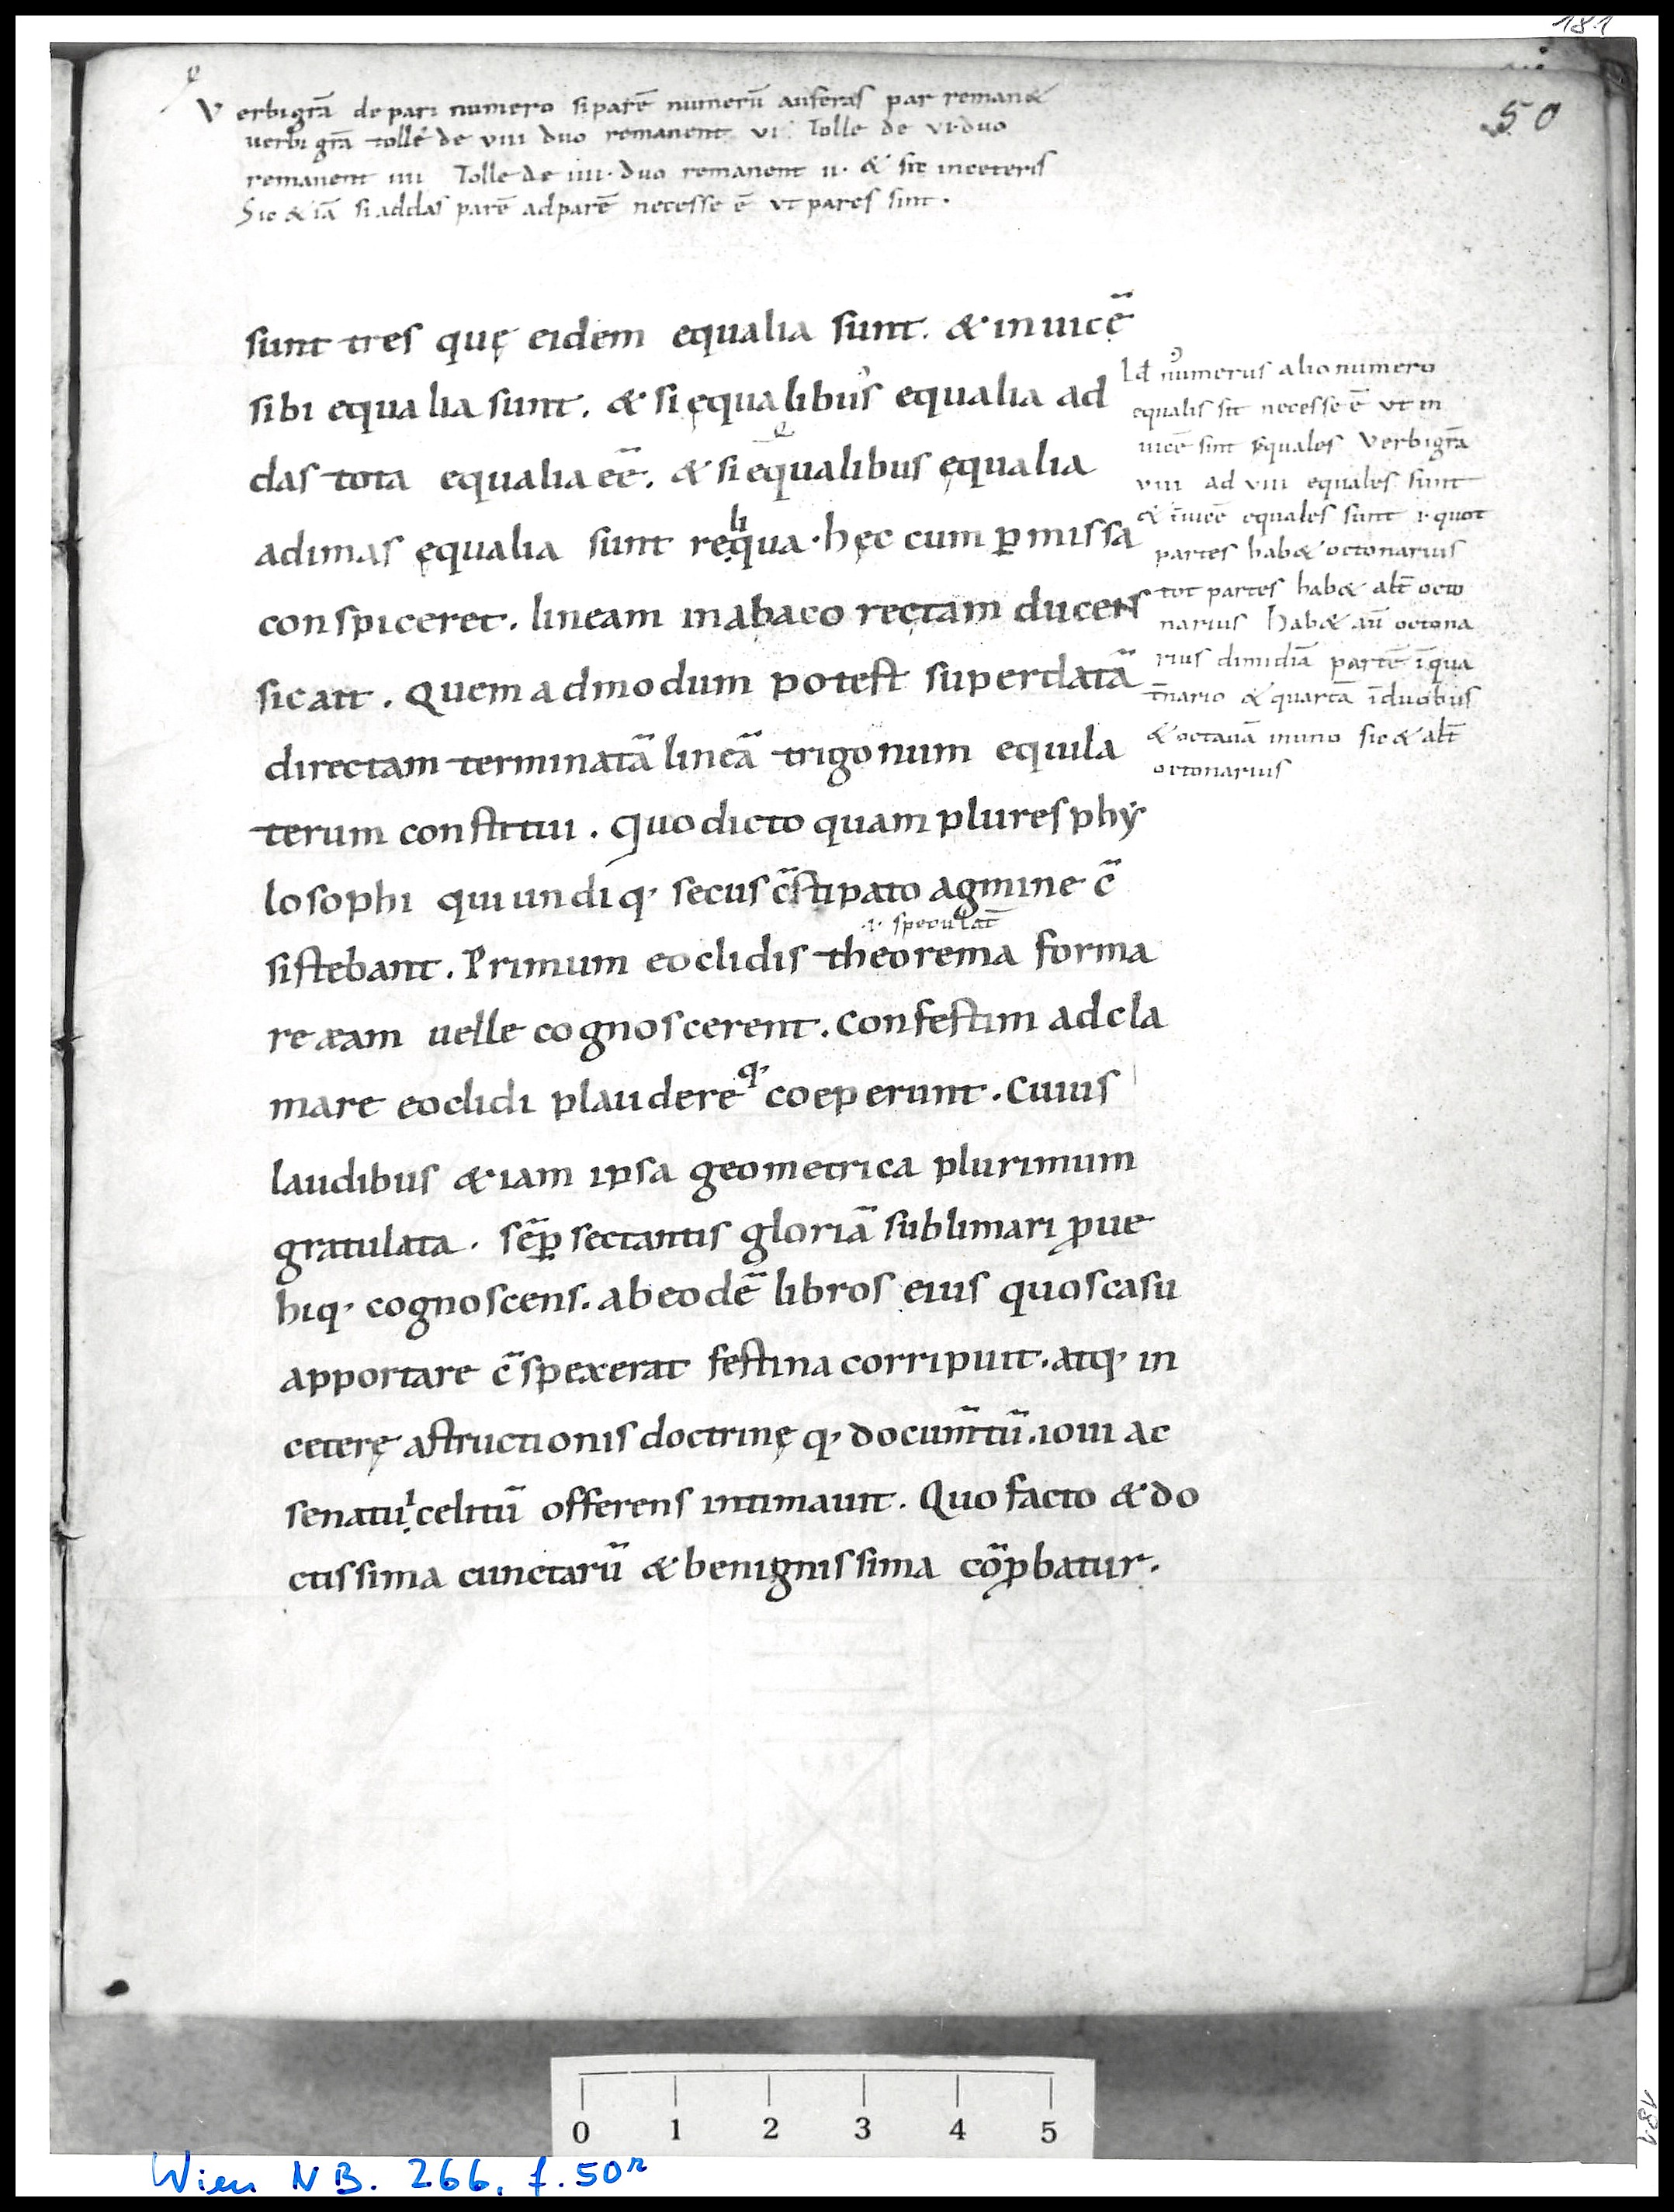 181
50
Verbigrā de pari numero si parē numerū auferas par reman&
uerbi grā tolle de viii duo remanent vi. Tolle de vi·duo
remanent iiii Tolle de iiii·duo remanent ii· & sic inceteris
Sic & iā si addas parē adparē necesse ē vt pares sint.
sunt tres quę eidem equalia sunt. & inuicē
sibi equalia sunt. & si ęqualibus equalia ad
das tota equalia eē. & si equalibus ęqualia
adimas ęqualia sunt reliqua·hęc cum ꝑmissa
conspiceret. lineam inabaco rectam ducens
sicait. Quemadmodum potest superdatā
directam terminatā lineā trigonum equila
terum constitui. Quo dicto quam plures phy
losophi qui undiq· secus c̄stipato agmine c̄
·i· speculat̄
sistebant. Primum eoclidis theorema forma
re æam uelle cognoscerent. Confestim adcla
mare eoclidi plaudereq· coeperunt. Cuius
laudibus &iam ipsa geometrica plurimum
gratulata. sēꝑ sectantis gloriā sublimari ꝓue
hiq· cognoscens. abeodē libros eius quos casu
apportare c̄spexerat festina corripuit. atq· in
ceterę astructionis doctrinę q· docum̄tū. ioui ac
senatui celitū offerens intimauit. Quo facto & do
ctissima cunctarū & benignissima cōꝓbatur.
numerus alio numero
equalis sit necesse ē vt in
uicē sint Equales Verbigrā
viii ad viii equales sunt
& īuicē equales sunt ·i· quot
partes hab& octonarius
tot partes hab& alt̄ octo
narius hab& aū octona
rius dimidiā partē īqua
t̄nario & quartā īduobus
& octauā inuno sic & alt̄
octonarius
0 1 2 3 4 5
181
Wien NB. 266, f. 50r